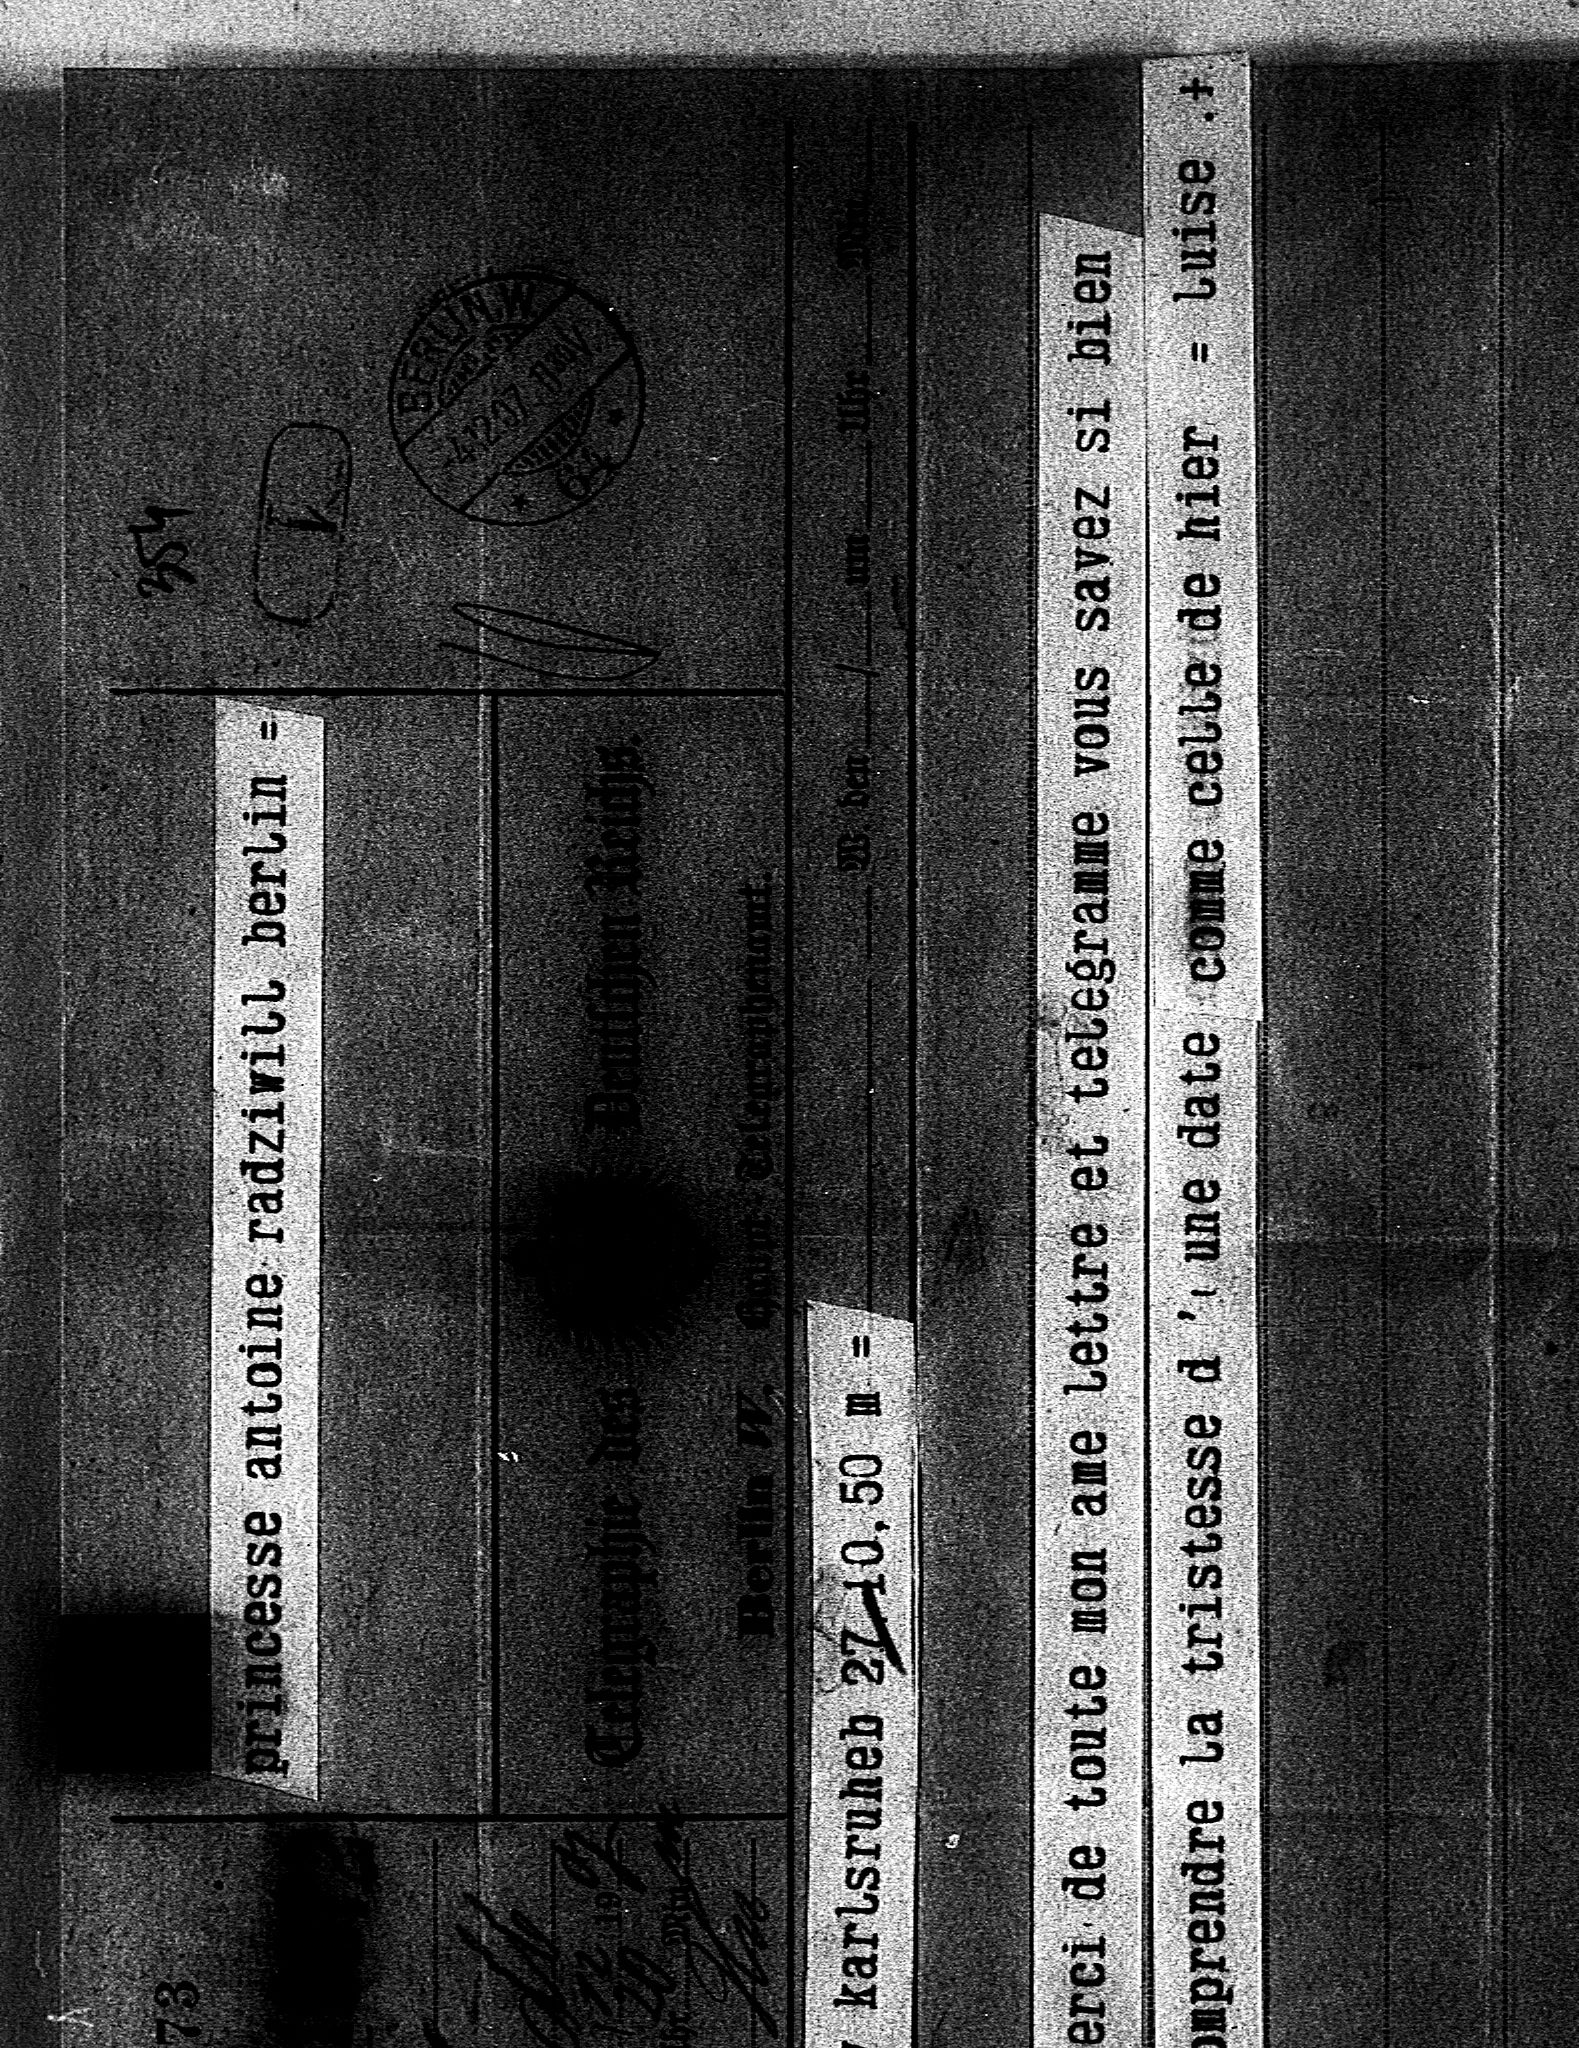 354
princesse antoine radziwill berlin =
73
Telegraphie des Deutschen Reichs.
Berlin W. Haupt-Telegraphenamt.
BERLIN.W
4.12.07
64
karlsruheb 27 10,50 m =
W. den um Uhr Min.
erci de toute mon ame lettre et telegramme vous savez si bien
omprendre la tristesse d'une date comme celle de hier = luise .+